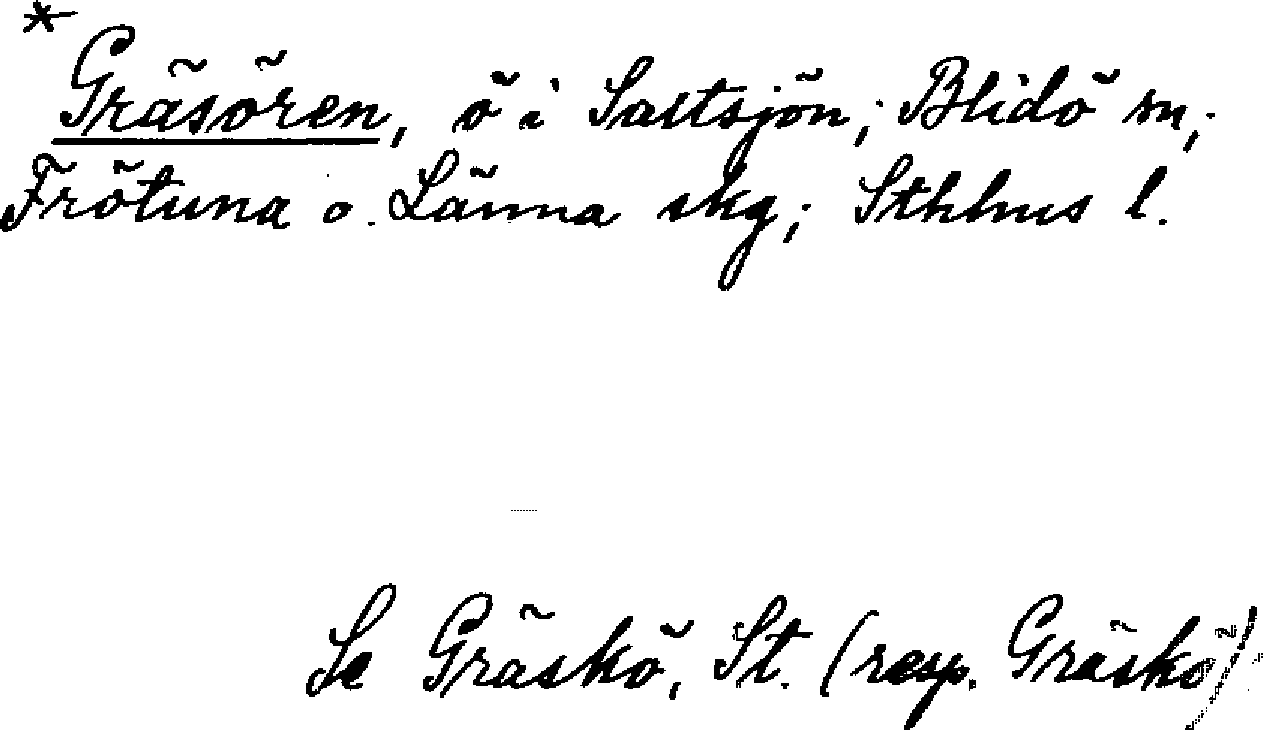 * Gräsören, ö i Saltsjön; Blidö sn;
Frötuna o. Länna skg; Sthlms l.
Se Gräskö, St. (resp. Gräskö)